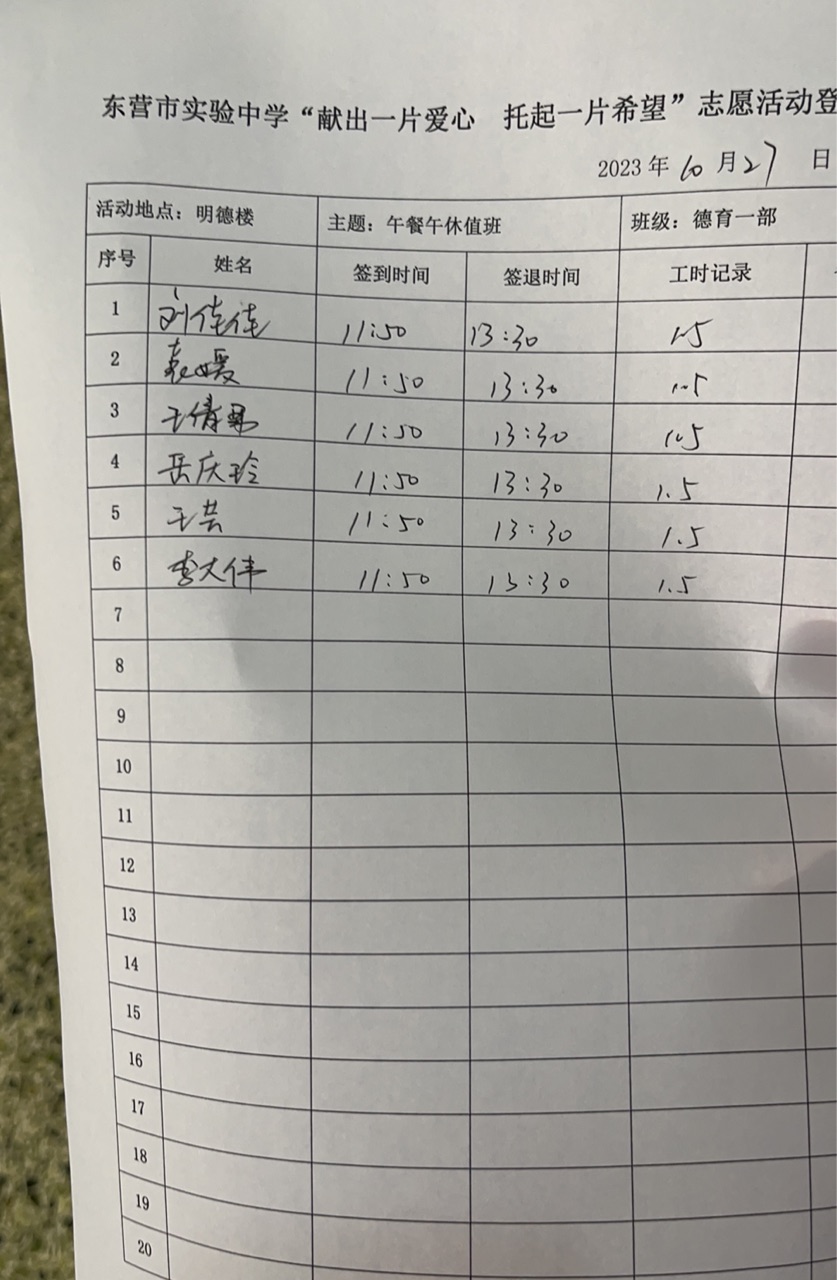 东营市实验中学“献出一片爱心 托起一片希望”志愿活动登
2023 年 10 月 27 日
活动地点：明德楼 主题：午餐午休值班 班级：德育一部
序号 姓名 签到时间 签退时间 工时记录
1 刘佳佳 11:50 13:30 1.5
2 袁媛 11:50 13:30 1.5
3 王倩 11:50 13:30 1.5
4 岳庆玲 11:50 13:30 1.5
5 王芸 11:50 13:30 1.5
6 李大伟 11:50 13:30 1.5
7
8
9
10
11
12
13
14
15
16
17
18
19
20